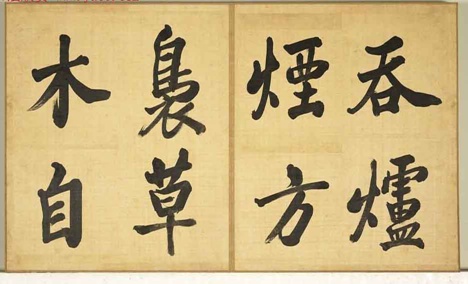 吞爐
煙方
裊草
木自